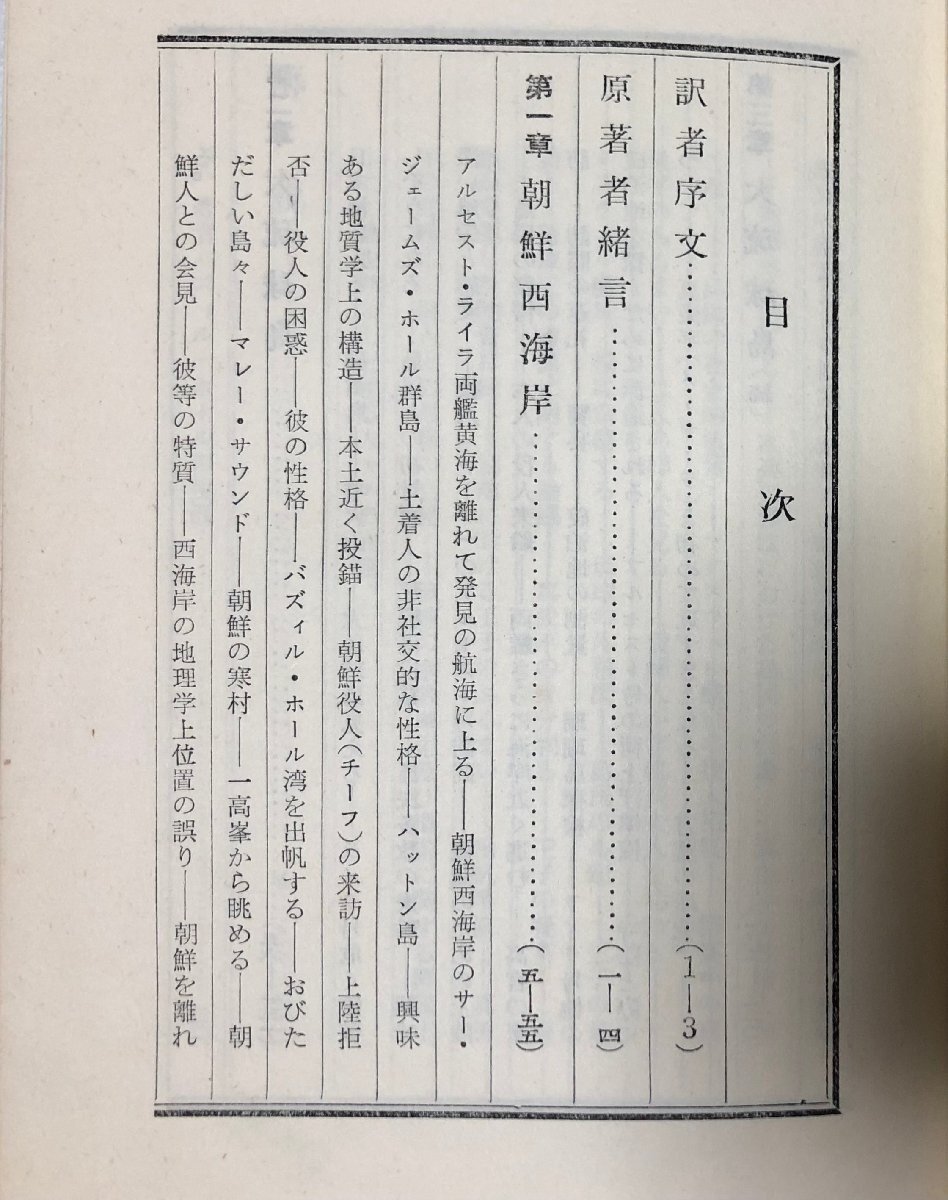 目次
訳者序文……………………………(1―3)
原著者緒言……………………………(一―四)
第一章 朝鮮西海岸……………………………(五―五五)
アルセスト・ライラ両艦黄海を離れて発見の航海に上る――朝鮮西海岸のサー・
ジェームズ・ホール群島――土着人の非社交的な性格――ハットン島――興味
ある地質学上の構造――本土近く投錨――朝鮮役人(チーフ)の来訪――上陸拒
否――役人の困惑――彼の性格――バズィル・ホール湾を出帆する――おびた
だしい島々――マレー・サウンド――朝鮮の寒村――一高峯から眺める――朝
鮮人との会見――彼等の特質――西海岸の地理学上位置の誤り――朝鮮を離れ